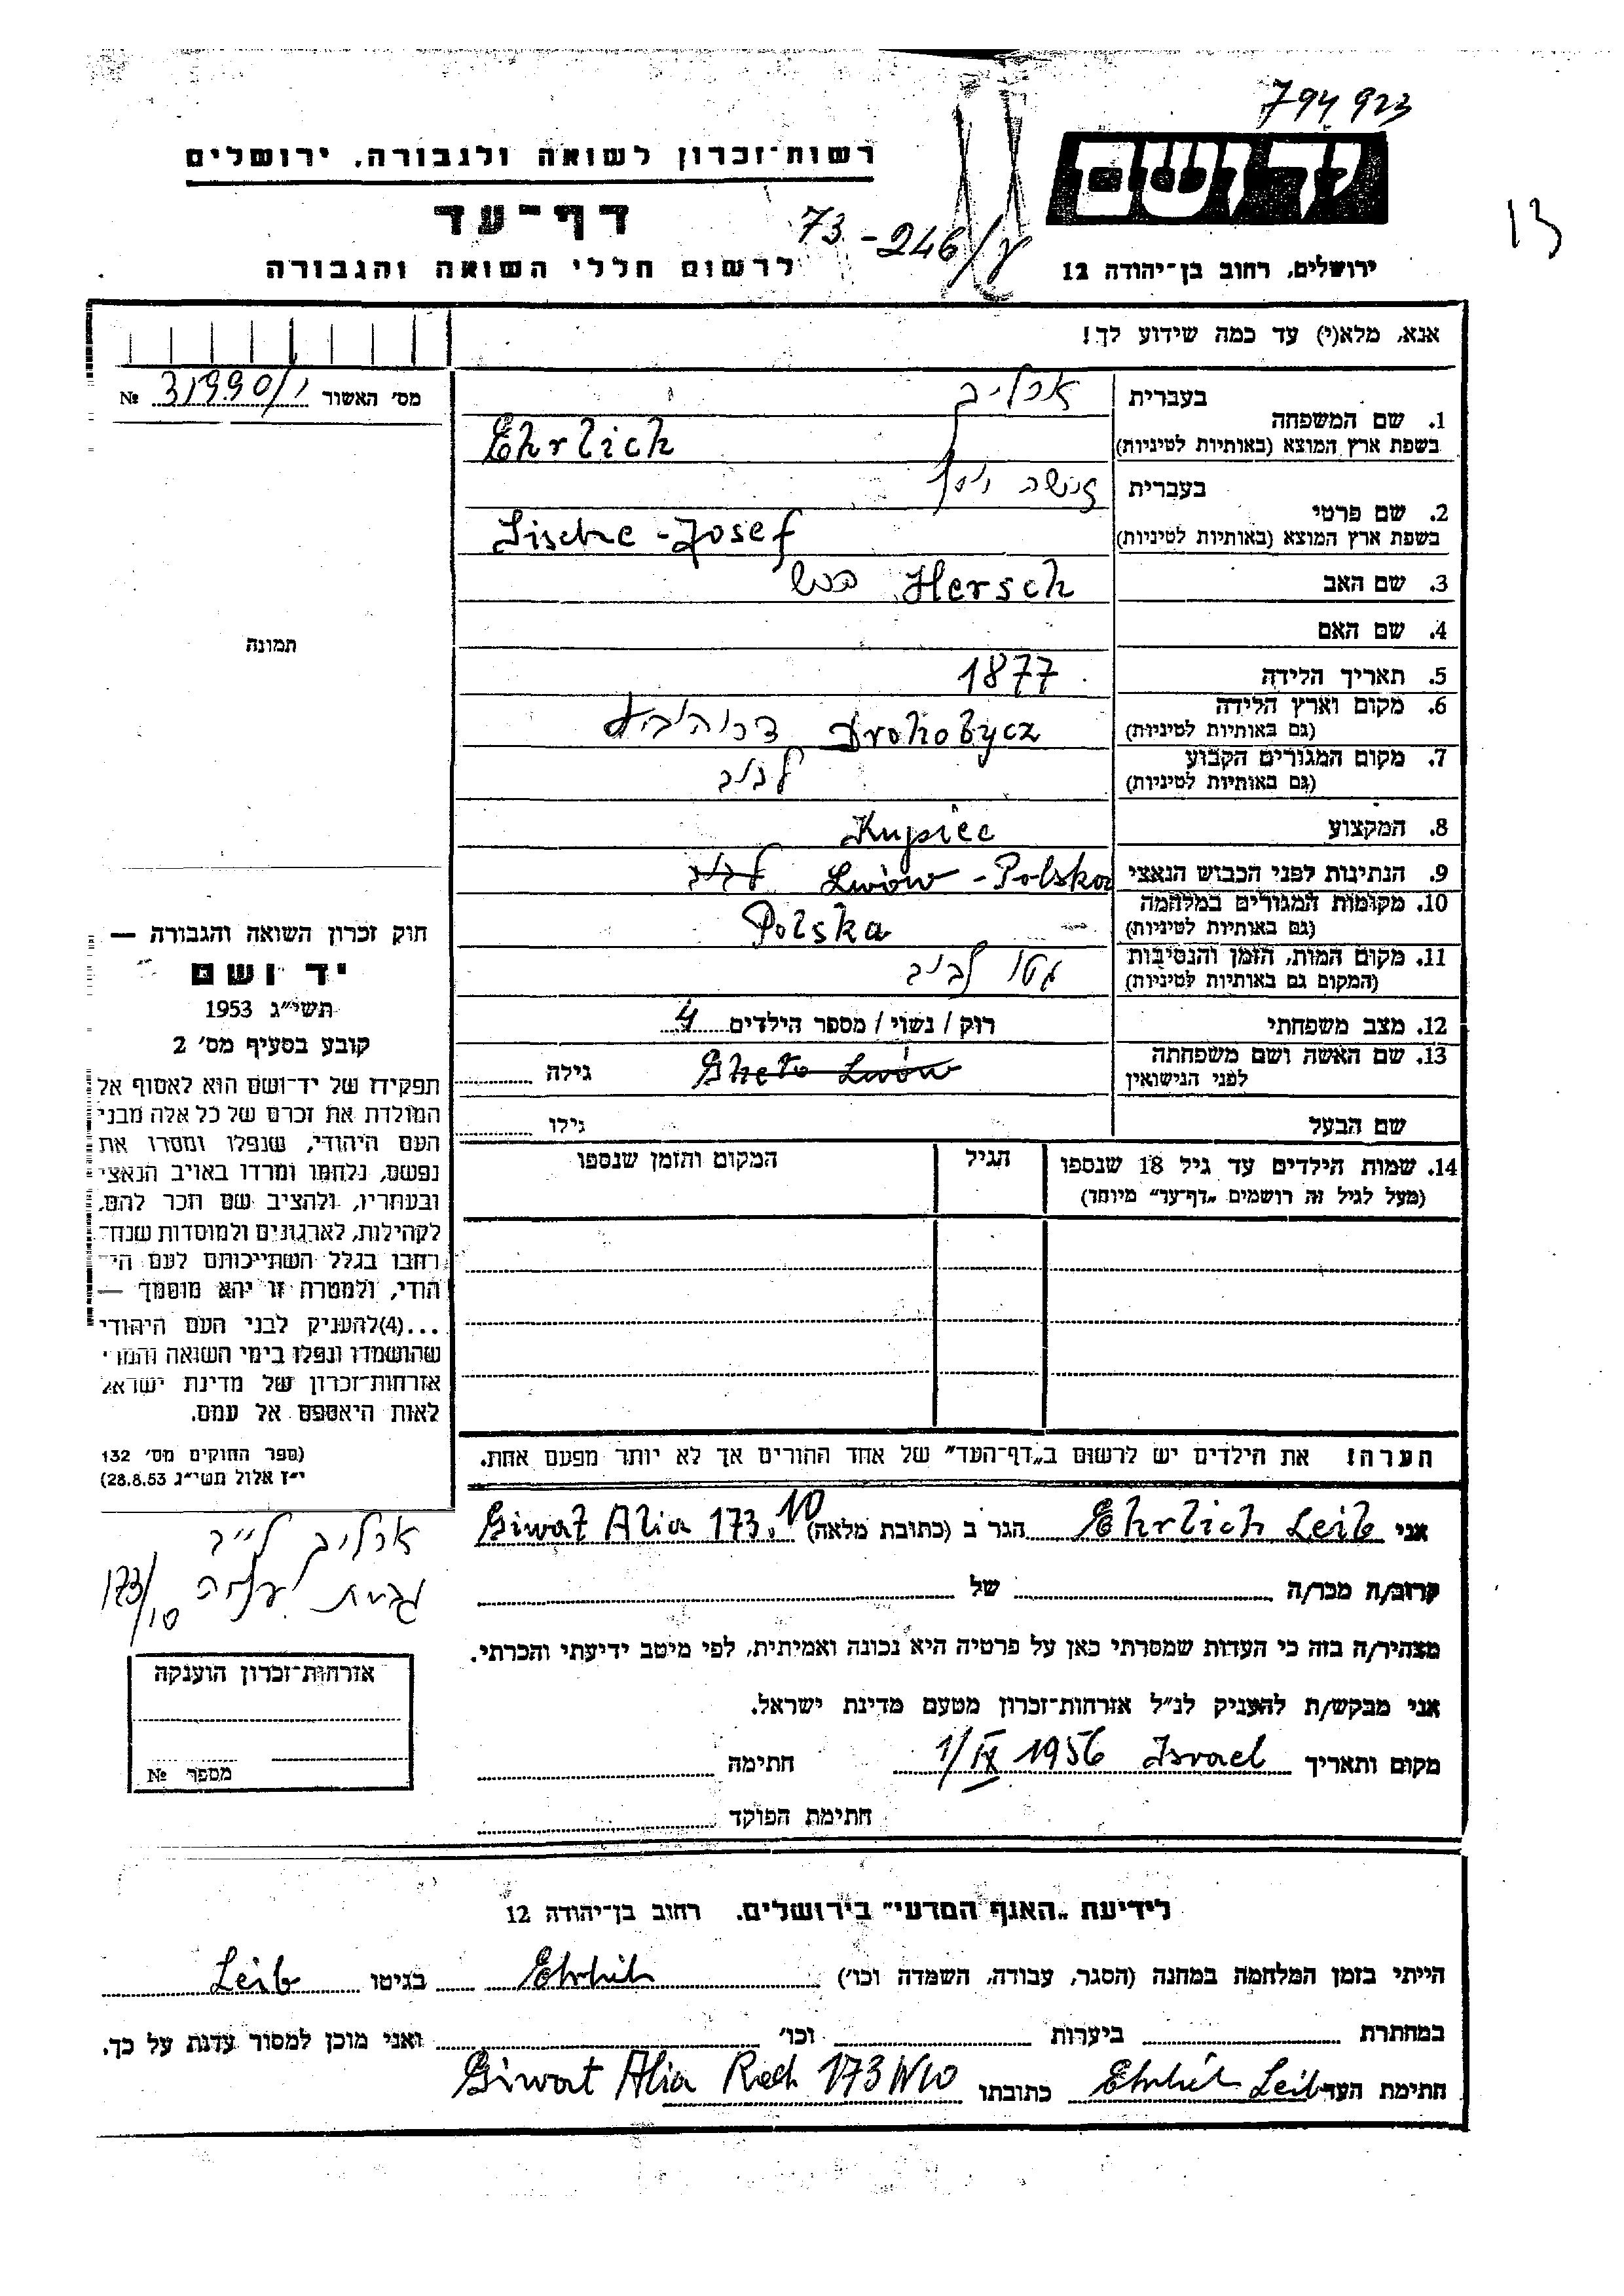 794923
רשות־זכרון לשואה ולגבורה, ירושלים
יד ושם
13
דף־עד
73-246/ע
לרשום חללי השואה והגבורה
ירושלים, רחוב בן־יהודה 12
אנא, מלא(י) עד כמה שידוע לך!
מס׳ האשור № 31990/י
1. שם המשפחה
בעברית ארליב
בשפת ארץ המוצא (באותיות לטיניות) Ehrlich
2. שם פרטי
בעברית זישה יוסף
בשפת ארץ המוצא (באותיות לטיניות) Sische-Josef
3. שם האב Hersch הרש
4. שם האם
5. תאריך הלידה 1877
6. מקום וארץ הלידה Drohobycz
(גם באותיות לטיניות)
7. מקום המגורים הקבוע לבוב
(גם באותיות לטיניות)
8. המקצוע Kupiec
9. הנתינות לפני הכבוש הנאצי Lwów-Polska לבוב
10. מקומות המגורים במלחמה Polska
(גם באותיות לטיניות)
11. מקום המות, הזמן והנסיבות גטו לבוב
(המקום גם באותיות לטיניות)
12. מצב משפחתי רוק / נשוי / מספר הילדים 4
13. שם האשה ושם משפחתה Gheto Lwów גילה
לפני הנישואין
שם הבעל גילו
14. שמות הילדים עד גיל 18 שנספו הגיל המקום והזמן שנספו
(מעל לגיל זה רושמים „דף־עד״ מיוחד)
הערה! את הילדים יש לרשום ב„דף־העד״ של אחד ההורים אך לא יותר מפעם אחת.
תמונה
חוק זכרון השואה והגבורה —
יד ושם
תשי״ג 1953
קובע בסעיף מס׳ 2
תפקידו של יד־ושם הוא לאסוף אל
המולדת את זכרם של כל אלה מבני
העם היהודי, שנפלו ומסרו את
נפשם, נלחמו ומרדו באויב הנאצי
ובעוזריו, ולהציב שם וזכר להם,
לקהילות, לארגונים ולמוסדות שנח־
רחבו בגלל השתייכותם לעם הי־
הודי, ולמטרה זו יהא מוסמך —
...(4)להעניק לבני העם היהודי
שהושמדו ונפלו בימי השואה והמרי
אזרחות־זכרון של מדינת ישראל
לאות היאספם אל עמם.
(ספר החוקים מס׳ 132
י״ז אלול תשי״ג 28.8.53)
אני Ehrlich Leib הגר ב (כתובת מלאה) Giwat Alia 173.10
קרוב/ה מכר/ה של
מצהיר/ה בזה כי העדות שמסרתי כאן על פרטיה היא נכונה ואמיתית, לפי מיטב ידיעתי והכרתי.
אני מבקש/ת להעניק לנ״ל אזרחות־זכרון מטעם מדינת ישראל.
מקום ותאריך Israel 1/IX 1956 חתימה
חתימת הפוקד
ארליב ליב
גבעת עליה 173/10
אזרחות־זכרון הוענקה
מספר №
לידיעת „האגף המדעי״ בירושלים. רחוב בן־יהודה 12
הייתי בזמן המלחמה במחנה (הסגר, עבודה, השמדה וכו׳) Ehrlich בגיטו Leib
במחתרת ביערות וכו׳ ואני מוכן למסור עדות על כך.
חתימת העד Ehrlich Leib כתובתו Giwat Alia 173 N10